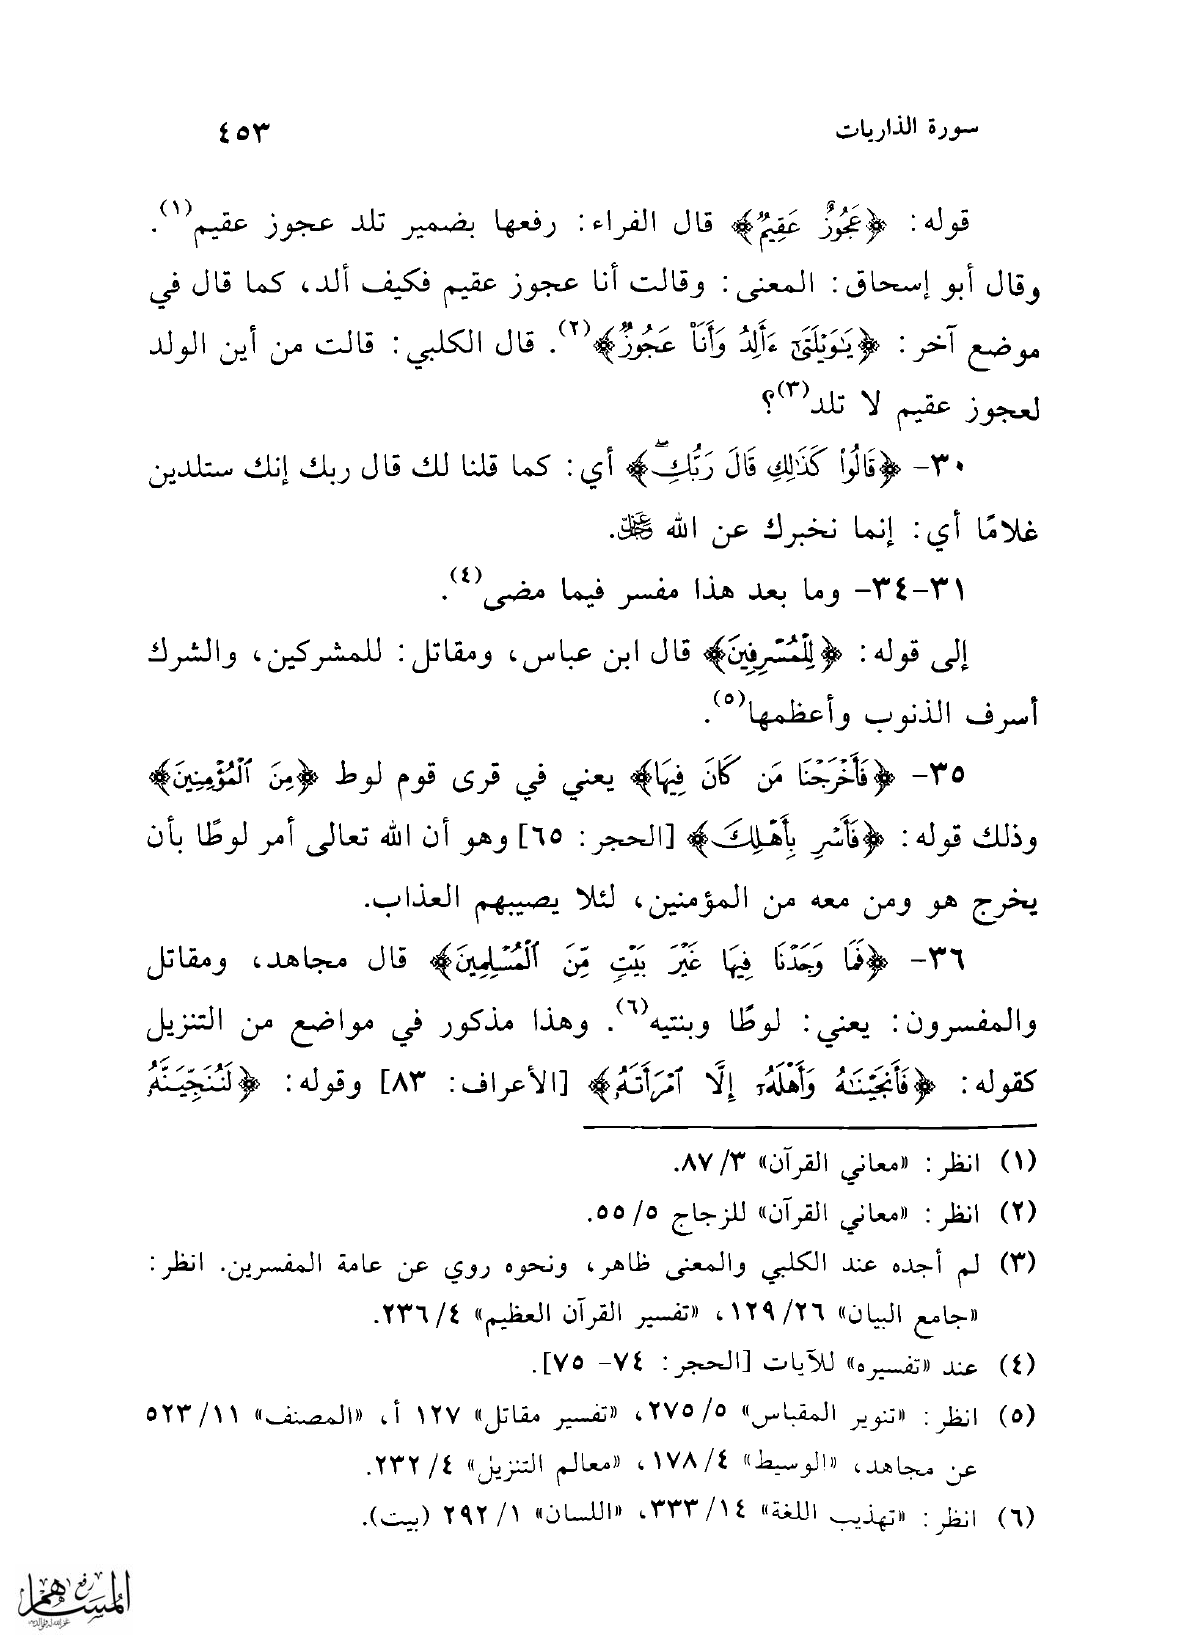 سورة الذاريات ٤٥٣
قوله: ﴿عَجُوزٌ عَقِيمٌ﴾ قال الفراء: رفعها بضمير تلد عجوز عقيم(١).
وقال أبو إسحاق: المعنى: وقالت أنا عجوز عقيم فكيف ألد، كما قال في
موضع آخر: ﴿يَٰوَيْلَتَىٰٓ ءَأَلِدُ وَأَنَا۠ عَجُوزٌ﴾(٢). قال الكلبي: قالت من أين الولد
لعجوز عقيم لا تلد(٣)؟
٣٠- ﴿قَالُوا۟ كَذَٰلِكِ قَالَ رَبُّكِۖ﴾ أي: كما قلنا لك قال ربك إنك ستلدين
غلامًا أي: إنما نخبرك عن الله عز وجل.
٣١-٣٤- وما بعد هذا مفسر فيما مضى(٤).
إلى قوله: ﴿لِلْمُسْرِفِينَ﴾ قال ابن عباس، ومقاتل: للمشركين، والشرك
أسرف الذنوب وأعظمها(٥).
٣٥- ﴿فَأَخْرَجْنَا مَن كَانَ فِيهَا﴾ يعني في قرى قوم لوط ﴿مِنَ ٱلْمُؤْمِنِينَ﴾
وذلك قوله: ﴿فَأَسْرِ بِأَهْلِكَ﴾ [الحجر: ٦٥] وهو أن الله تعالى أمر لوطًا بأن
يخرج هو ومن معه من المؤمنين، لئلا يصيبهم العذاب.
٣٦- ﴿فَمَا وَجَدْنَا فِيهَا غَيْرَ بَيْتٍ مِّنَ ٱلْمُسْلِمِينَ﴾ قال مجاهد، ومقاتل
والمفسرون: يعني: لوطًا وبنتيه(٦). وهذا مذكور في مواضع من التنزيل
كقوله: ﴿فَأَنجَيْنَٰهُ وَأَهْلَهُۥٓ إِلَّا ٱمْرَأَتَهُۥ﴾ [الأعراف: ٨٣] وقوله: ﴿لَنُنَجِّيَنَّهُۥ
(١) انظر: «معاني القرآن» ٣/ ٨٧.
(٢) انظر: «معاني القرآن» للزجاج ٥/ ٥٥.
(٣) لم أجده عند الكلبي والمعنى ظاهر، ونحوه روي عن عامة المفسرين. انظر:
«جامع البيان» ٢٦/ ١٢٩، «تفسير القرآن العظيم» ٤/ ٢٣٦.
(٤) عند «تفسيره» للآيات [الحجر: ٧٤- ٧٥].
(٥) انظر: «تنوير المقباس» ٥/ ٢٧٥، «تفسير مقاتل» ١٢٧ أ، «المصنف» ١١/ ٥٢٣
عن مجاهد، «الوسيط» ٤/ ١٧٨، «معالم التنزيل» ٤/ ٢٣٢.
(٦) انظر: «تهذيب اللغة» ١٤/ ٣٣٣، «اللسان» ١/ ٢٩٢ (بيت).